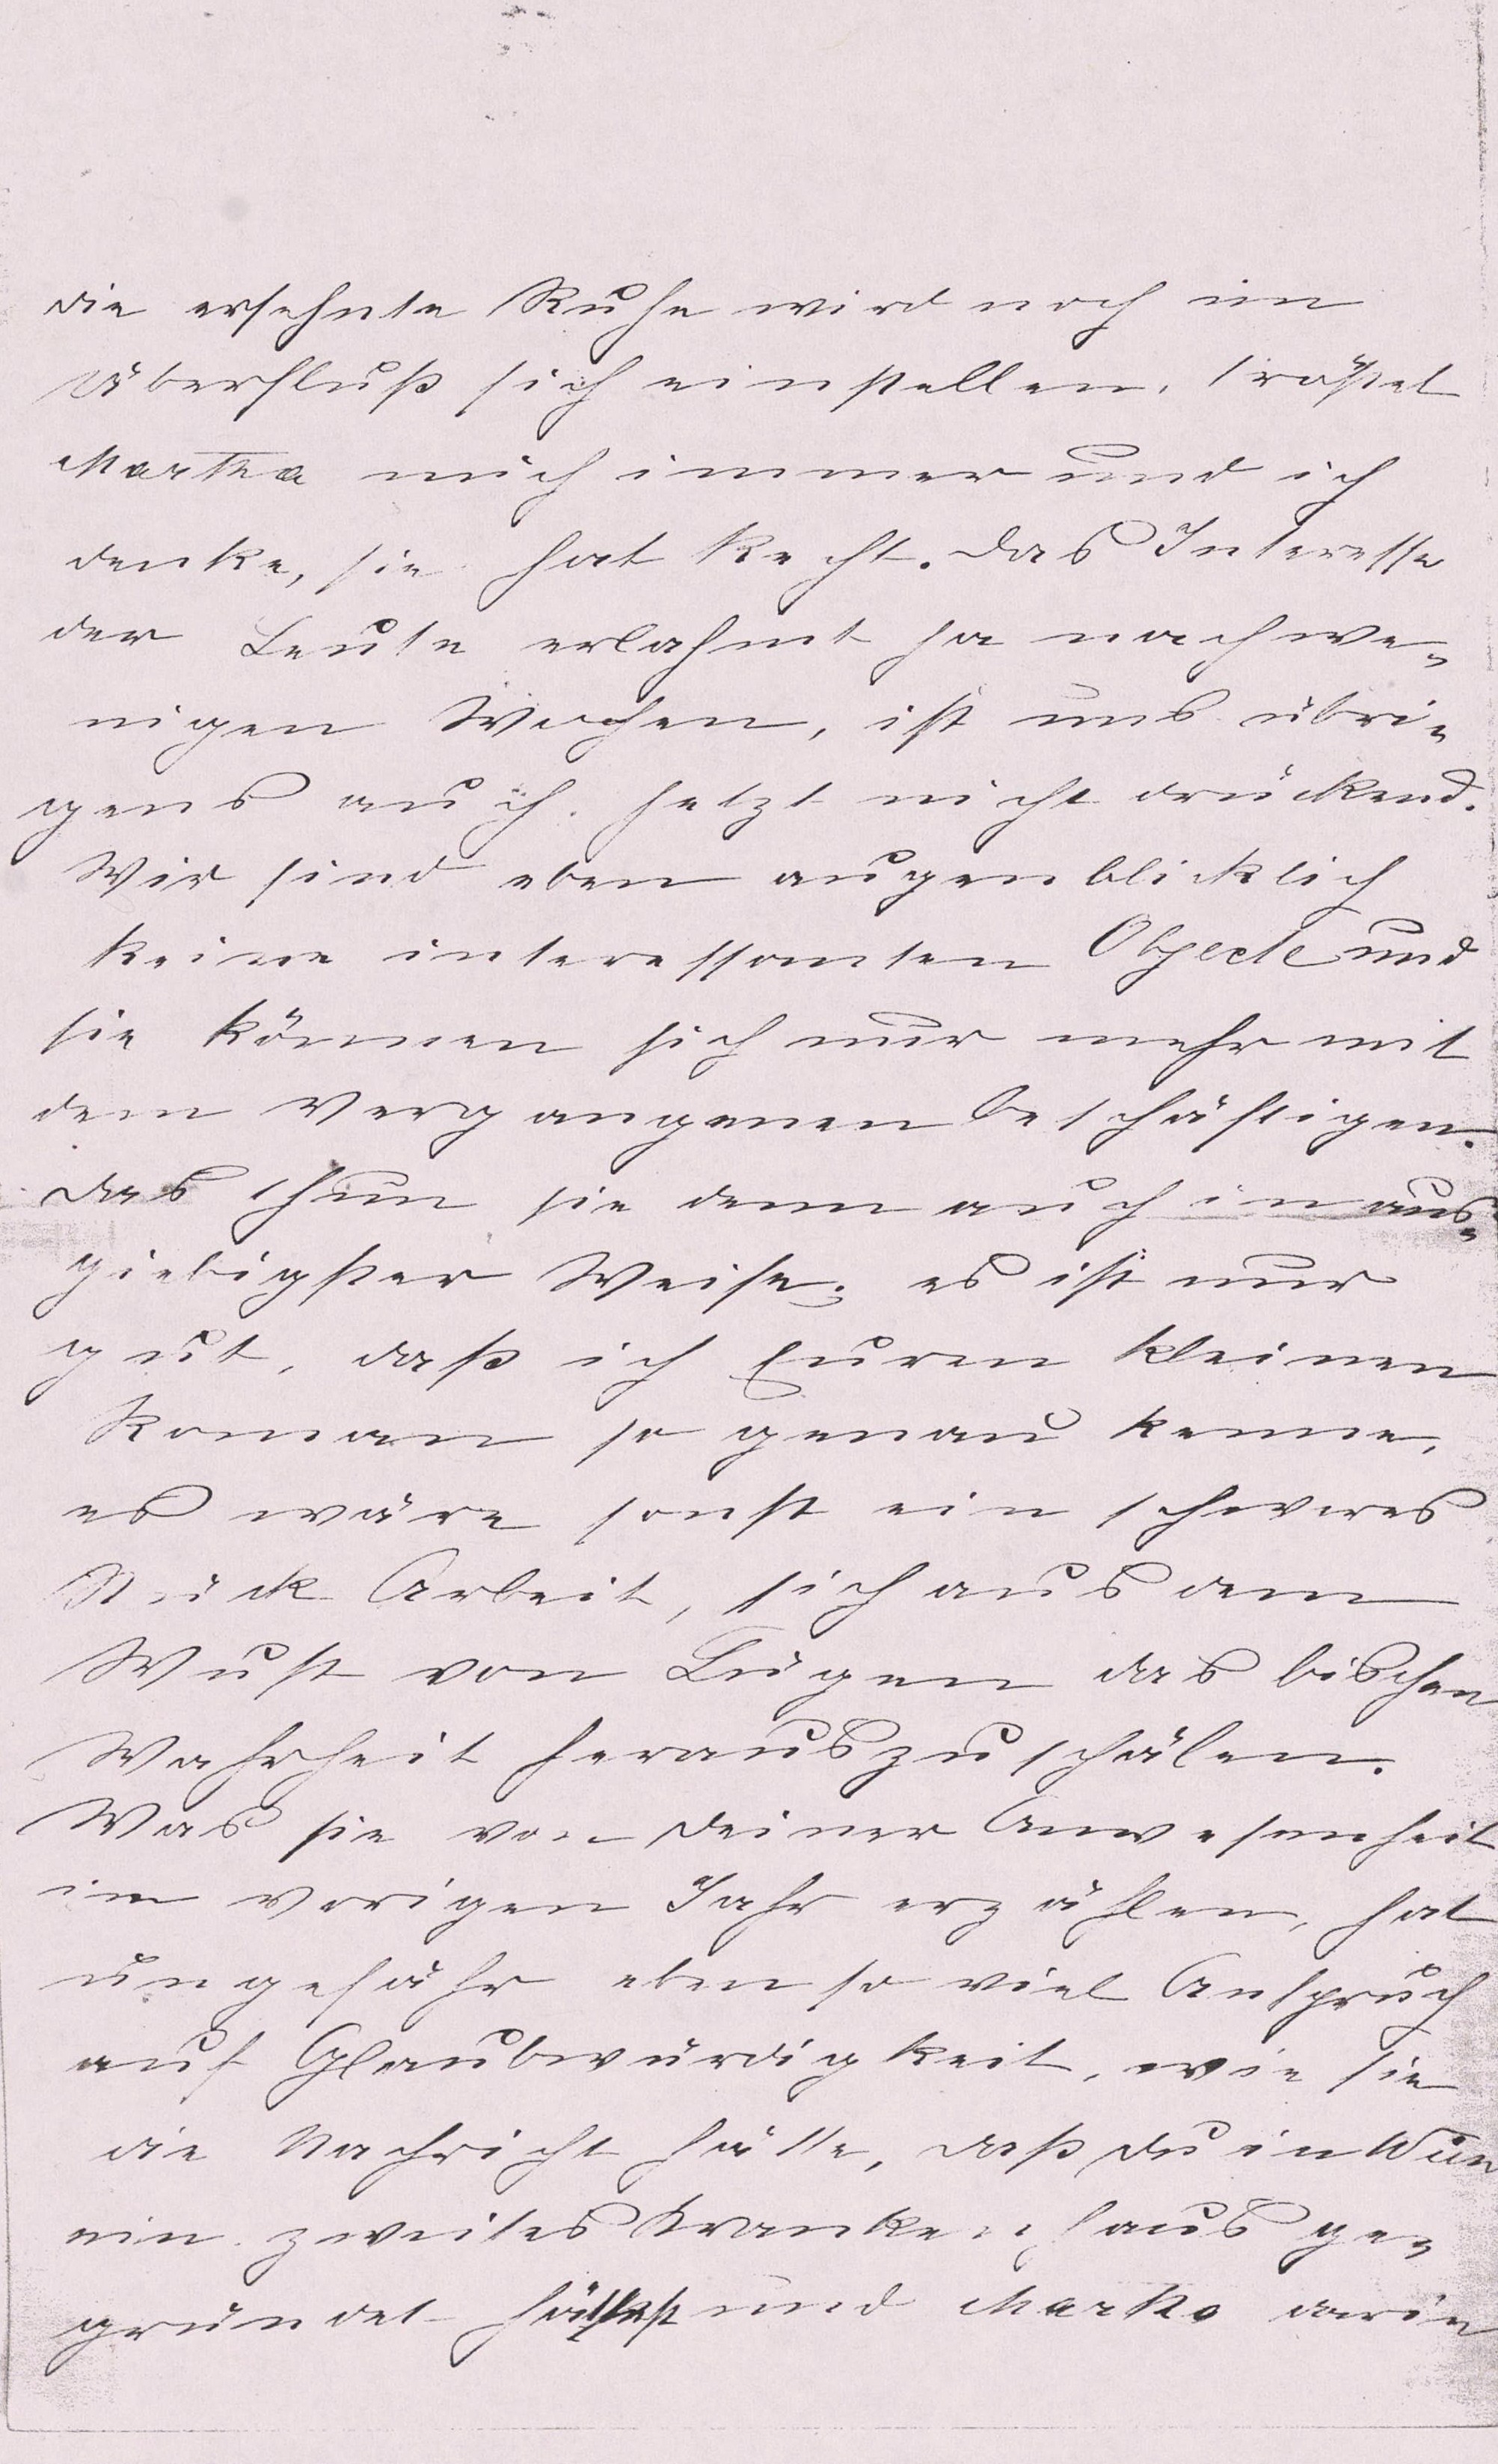 die ersehnte Ruhe wird noch im
Überfluß sich einstellen, tröstet
Martha mich immer und ich
denke, sie hat Recht. Das Interesse
der Leute erlahmt ja nach we-
nigen Wochen, ist uns übri-
gens auch jetzt nicht drückend.
Wir sind eben augenblicklich
keine interessanten Objecte und
sie können sich nur mehr mit
dem Vergangenen beschäftigen.
Das thun sie denn auch in aus-
giebigster Weise; es ist nur
gut, daß ich Euren kleinen
Roman so genau kenne,
es wäre sonst ein schweres
Stück Arbeit, sich aus dem
Wust von Lügen das bischen
Wahrheit herauszuschälen.
Was sie von Deiner Anwesenheit
im vorigen Jahr erzählen, hat
ungefähr eben so viel Anspruch
auf Glaubwürdigkeit, wie sie
die Nachricht hätte, daß Du in Wien
ein zweites Krankenhaus ge-
gründet hättest und Marko darin